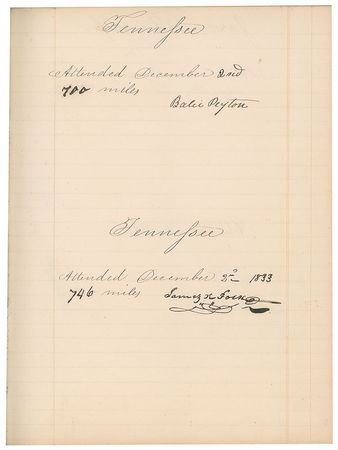 Tennessee
Attended December 2nd
700 miles
Balie Peyton
Tennessee
Attended December 2d 1833
746 miles
James K Polk